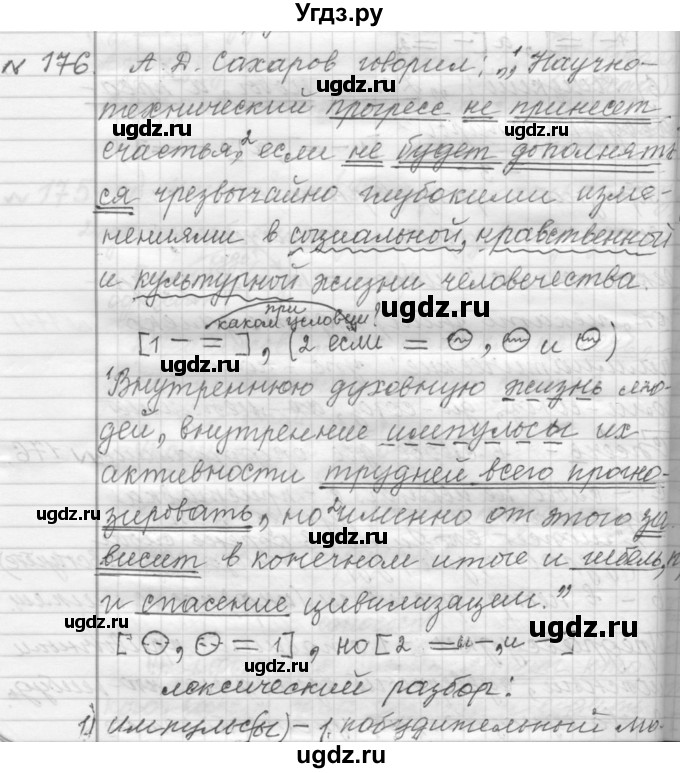 Угдз.ру
№ 176 А. Д. Сахаров говорил: „¹Научно-
технический прогресс не принесет
ugdz.ru ugdz.ru
счастья,² если не будет дополнять
ся чрезвычайно глубокими изме-
ugdz.ru
нениями в социальной, нравственной
и культурной жизни человечества.
ugdz.ru
при
каком условии?
[1 — =], (2 если = ~, ~ и ~)
ugdz.ru
¹Внутреннюю духовную жизнь лю-
дей, внутренние импульсы их
активности трудней всего прогно-
ugdz.ru ugdz.ru
зировать, но ²именно от этого за
висит в конечном итоге и гибель,
и спасение цивилизации.”
ugdz.ru ugdz.ru
[ , = 1], но [2 = и –, и –]
лексический разбор:
ugdz.ru
1) Импульс(ы) – 1. побудительный мо-
ugdz.ru